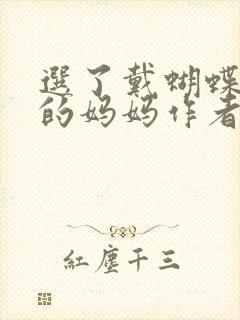 選了戴蝴蝶
的妈妈作者
紅塵千三